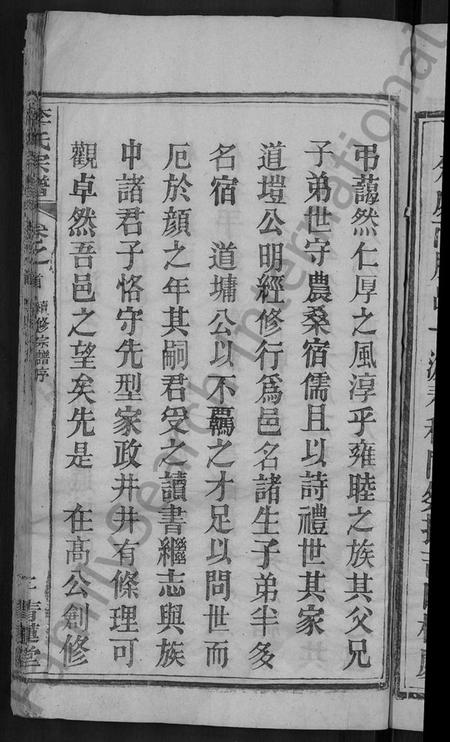 弔藹然仁厚之風淳乎雍睦之族其父兄
子弟世守農桑宿儒且以詩禮世其家
道塏公明經修行為邑名諸生子弟半多
名宿　道墉公以不羈之才足以問世而
厄於顏之年其嗣君受之讀書繼志與族
中諸君子恪守先型家政井井有條理可
觀卓然吾邑之望矣先是　在高公創修
李氏宗譜 卷之首 續修宗譜序 青蓮堂
FamilySearch International